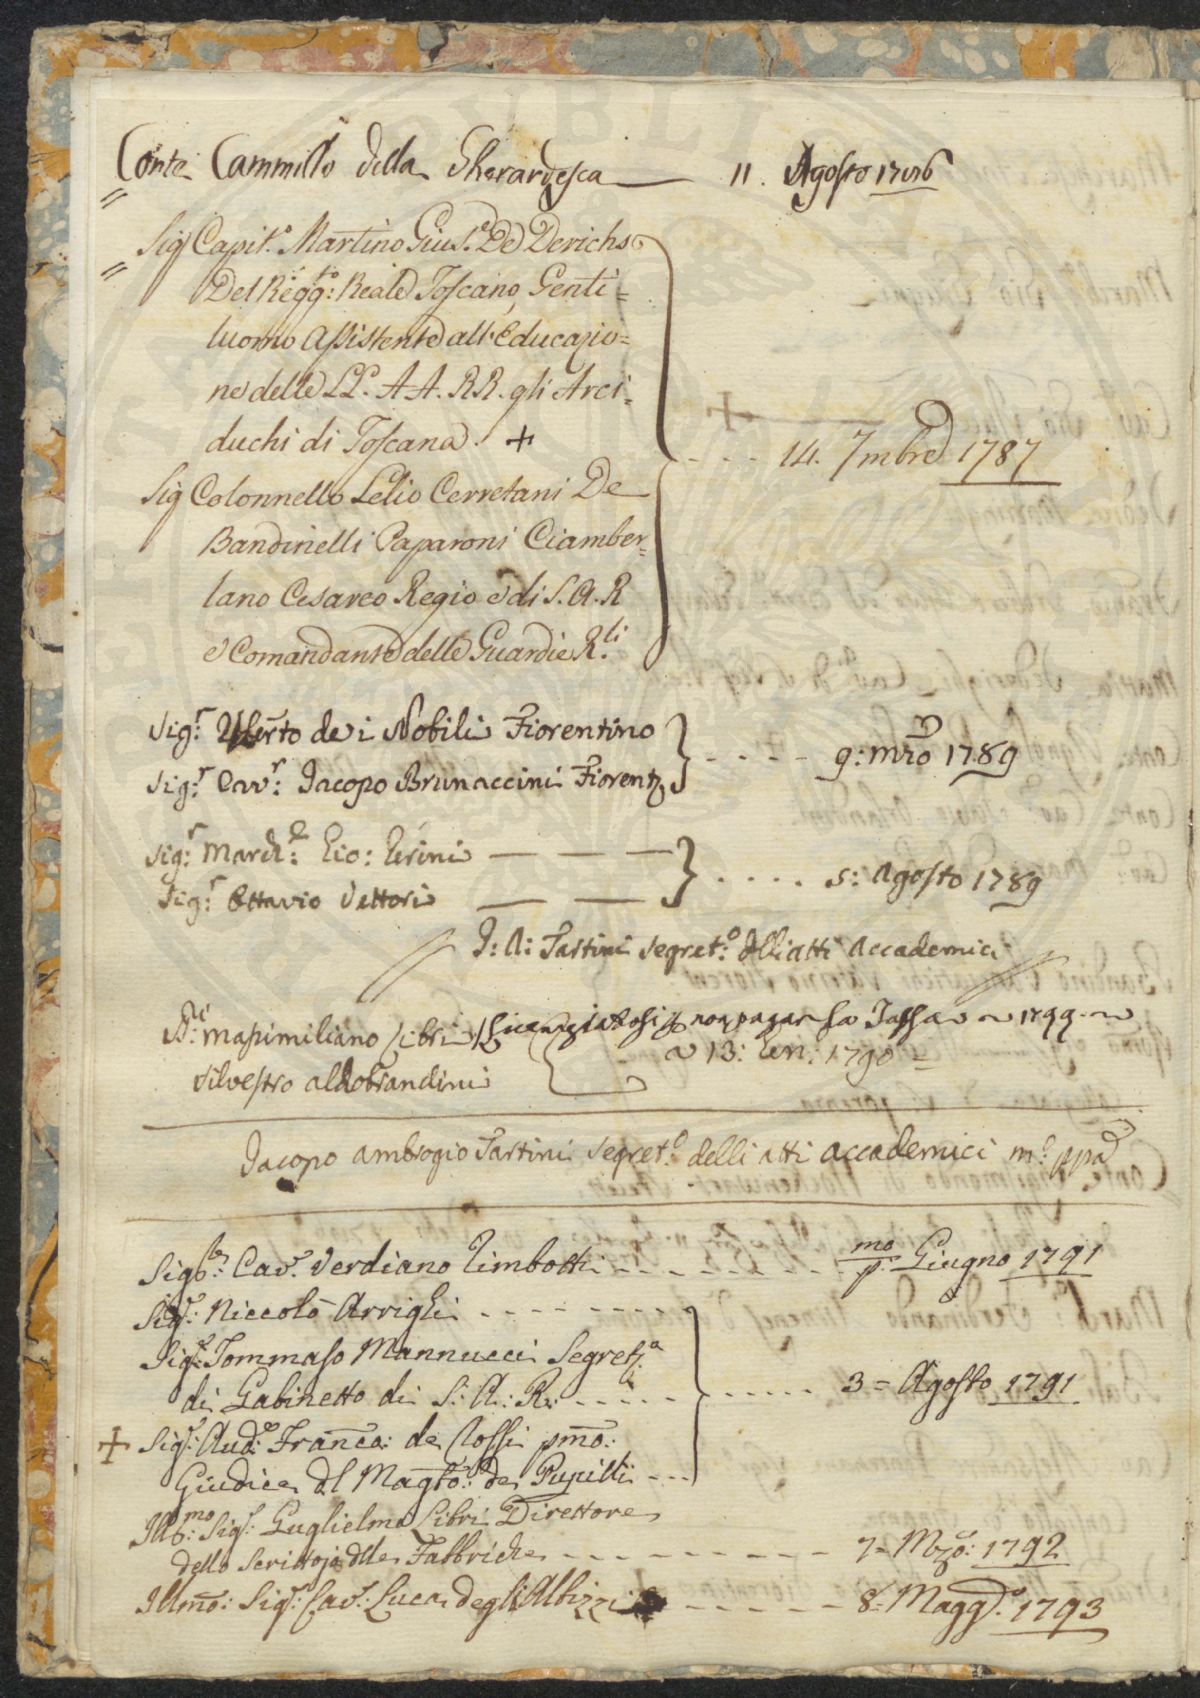 Conte Cammillo della Gherardesca — 11. Agosto 1786
Sig Capit.º Martino Gius.e De Derichs
Del Regg:to Reale Toscano, Genti=
luomo Assistente all'Educazio=
ne delle LL. AA. RR. gli Arci=
duchi di Toscana. +
14. 7mbre 1787
Sig Colonnello Lelio Cerretani De
Bandinelli Paparoni Ciamber=
lano Cesareo Regio e di S. A. R
e Comandante delle Guardie R.li
Sig:r Uberto de i Nobili Fiorentino
Sig:r Cav:r Jacopo Brunaccini Fiorent:
9: mzo 1789
Sig:r March:e Gio: Gerini — — —
Sig:r Ottavio Vettori — —
5: Agosto 1789
J: A: Tartini Segret:o dlli atti Accademici
B:li Massimiliano Libri / Licenziatosi p non pagar la Tassa ~ 1799. ~
~ 13: Gen: 1790 =
Silvestro Aldobrandini
Jacopo Ambrogio Tartini Segret.o delli atti accademici m.o ppa
Sig:r Cav.r Verdiano Zimbotti - - - - - - p.mo Giugno 1791
Sig:r Niccolò Arrighi - - - - - - - -
Sig:r Tommaso Mannucci Segret:a
di Gabinetto di S: A: R: - - - - -
3 = Agosto 1791
+ Sig:r Aud:e Franco: de Rossi pmo:
Giudice dl Magto: de Pupilli - - -
Ill:mo Sig:r Guglielmo Libri Direttore
dello Scrittojo dlle Fabbriche - - - - - - - - 7 = Mzo: 1792
Illmo: Sig:r Cav:r Luca degli Albizzi - - - - - - 8 = Magg.o 1793